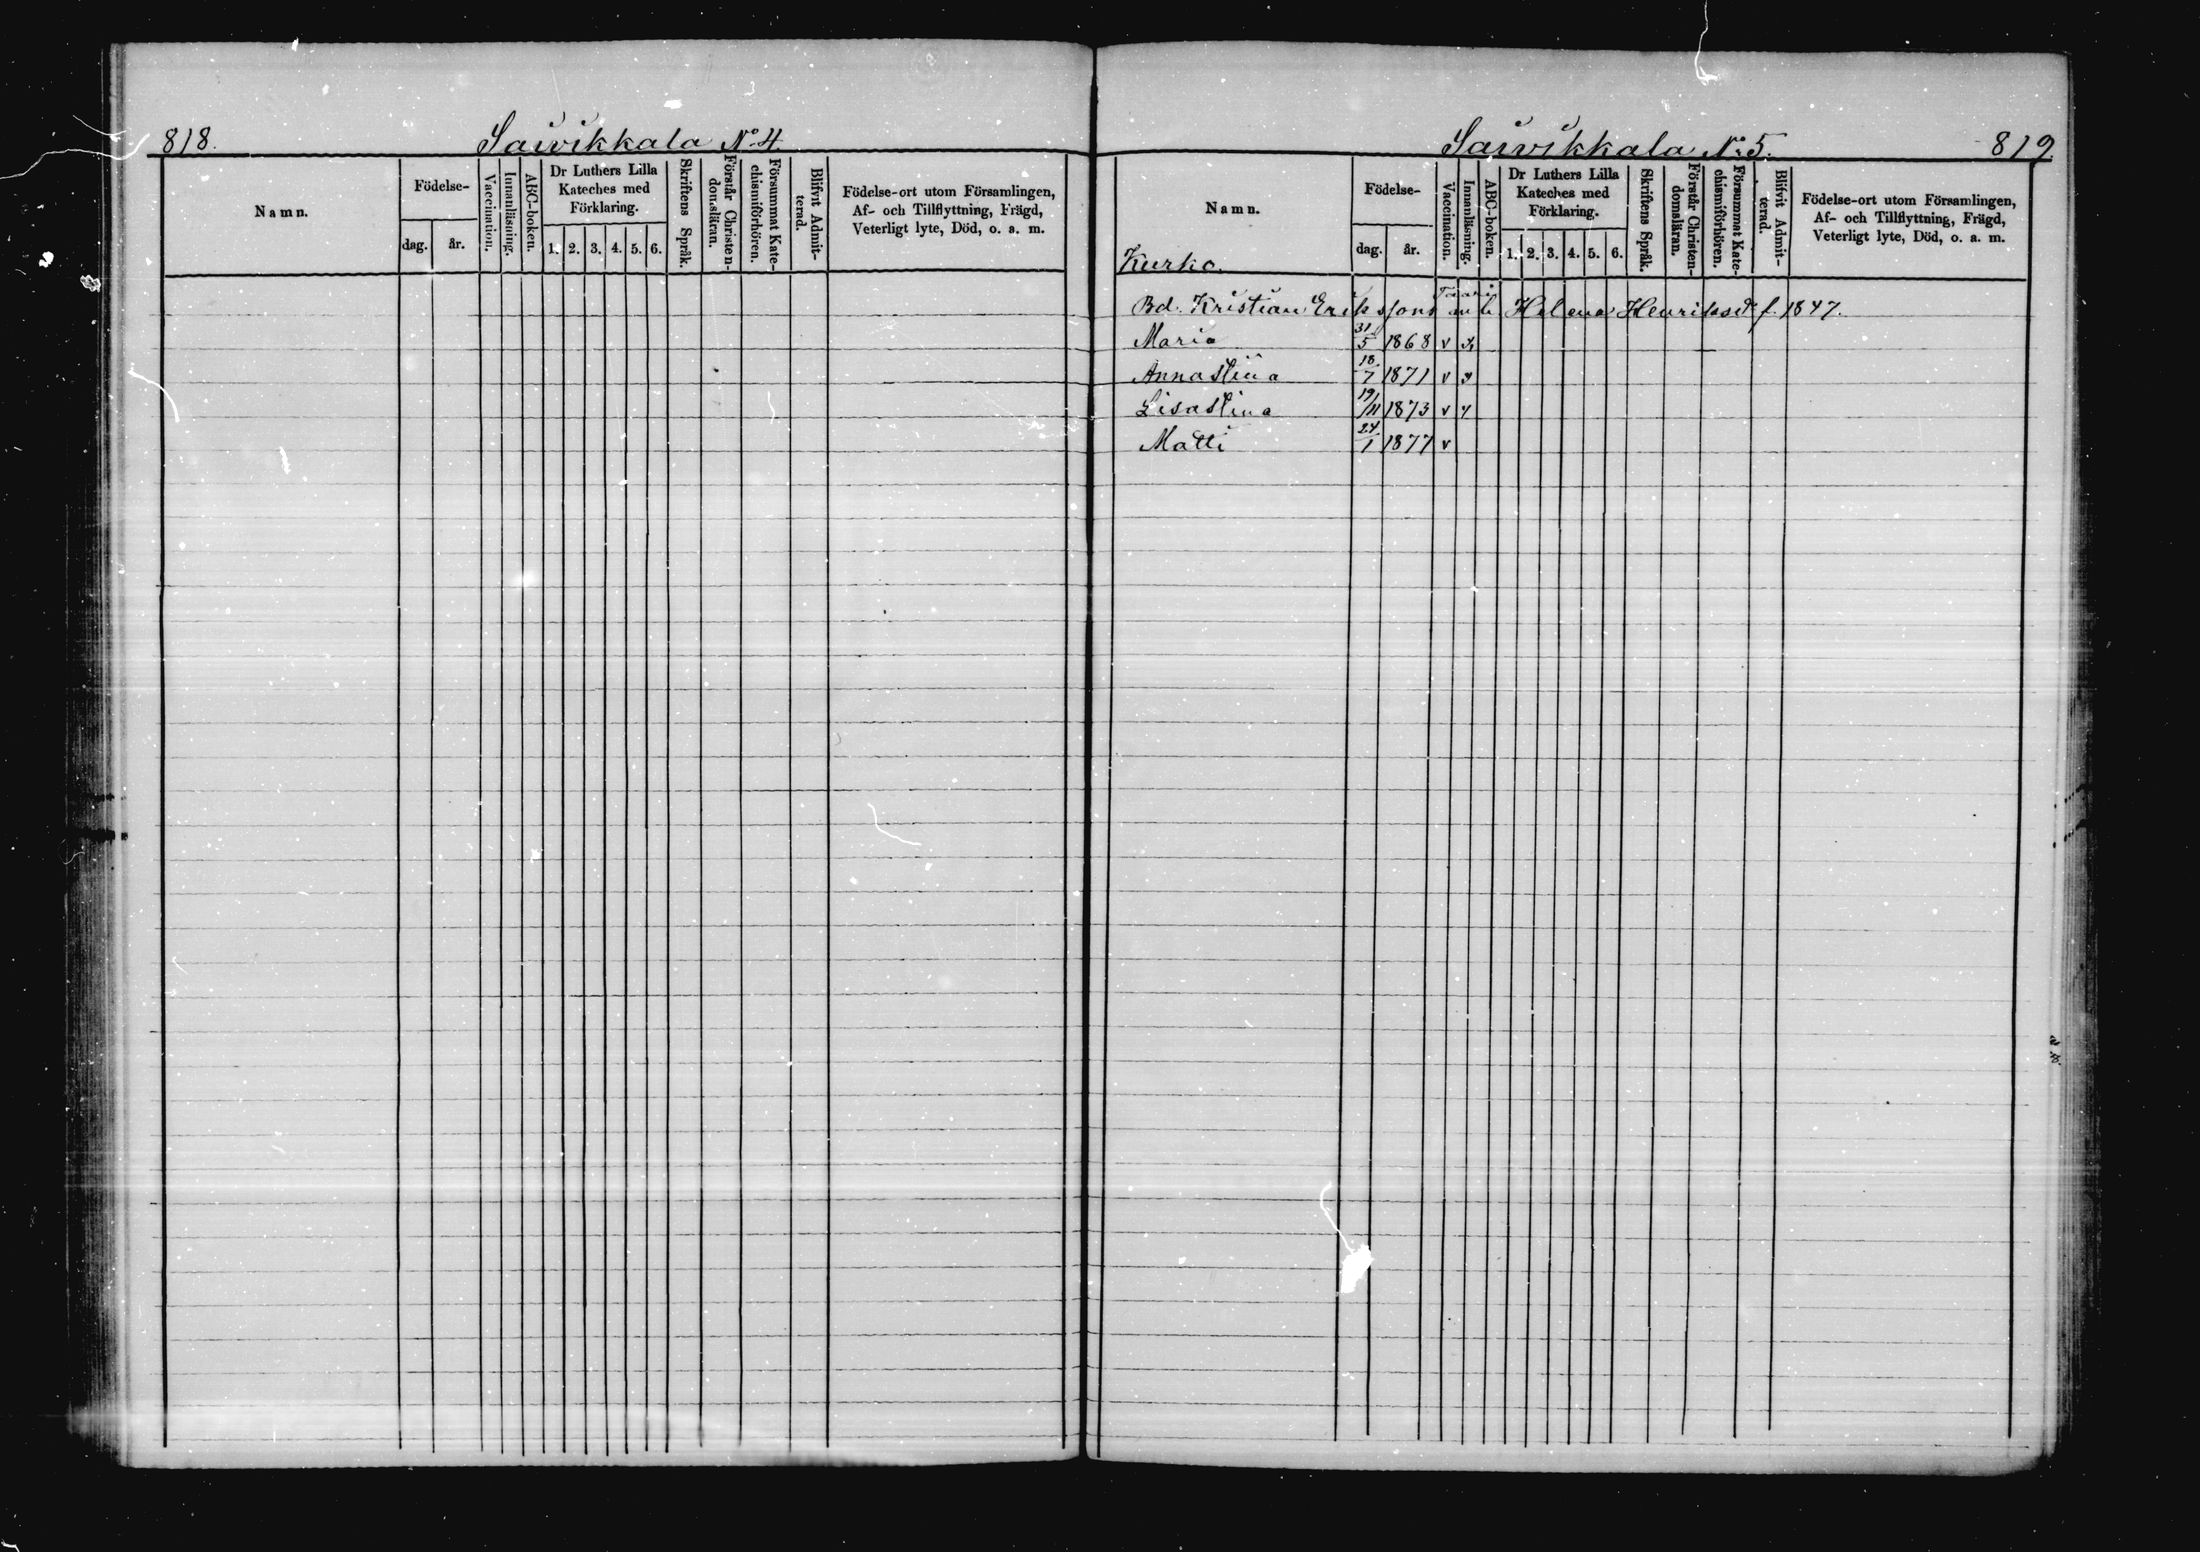 818. Saivikkala No 4
Namn.
Födelse-
dag. år.
Vaccination.
Innanläsning.
ABC-boken.
Dr Luthers Lilla
Kateches med
Förklaring.
1. 2. 3. 4. 5. 6.
Skriftens Språk.
Förstår Christen-
domsläran.
Försummat Kate-
chismiförhören.
Blifvit Admit-
terad.
Födelse-ort utom Församlingen,
Af- och Tillflyttning, Frägd,
Veterligt lyte, Död, o. a. m.
Saivikkala No 5. 819.
Namn.
Födelse-
dag. år.
Vaccination.
Innanläsning.
ABC-boken.
Dr Luthers Lilla
Kateches med
Förklaring.
1. 2. 3. 4. 5. 6.
Skriftens Språk.
Förstår Christen-
domsläran.
Försummat Kate-
chismiförhören.
Blifvit Admit-
terad.
Födelse-ort utom Församlingen,
Af- och Tillflyttning, Frägd,
Veterligt lyte, Död, o. a. m.
Kurko.
Bd. Kristian Erikssons Helena Henriksdr f. 1847.
Maria 31/5 1868 v
Annastina 18/7 1871 v
Lisastina 19/11 1873 v
Matti 24/1 1877 v